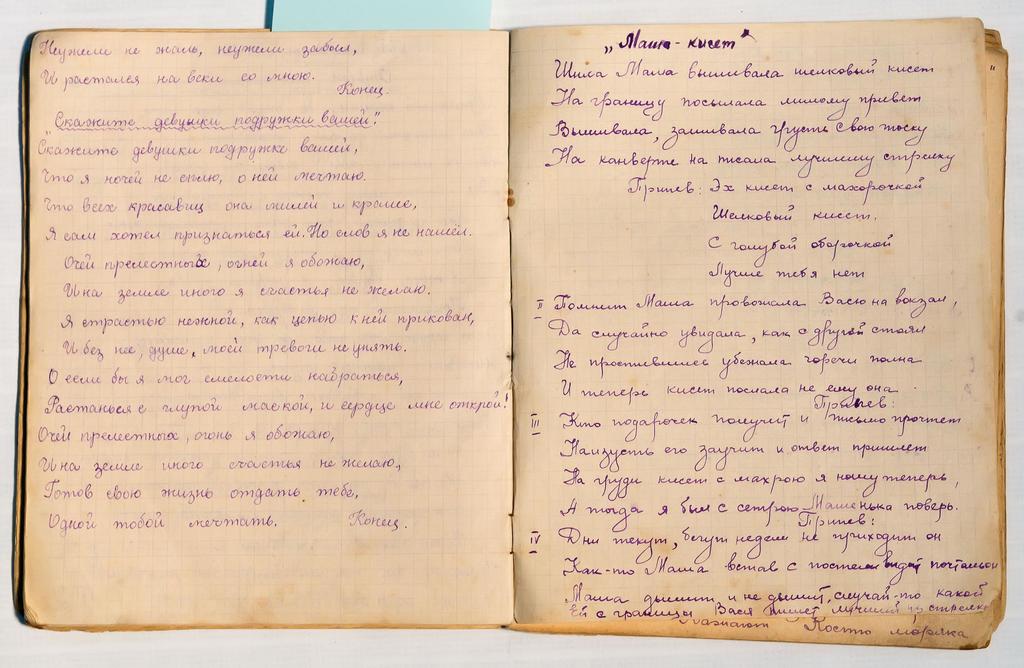 Неужели не жаль, неужели забыл,
И растался на веки со мною.
Конец.
„Скажите девушки подружки вашей."
Скажите девушки подружке вашей,
Что я ночей не сплю, о ней мечтаю.
Что всех красавиц она милей и краше,
Я сам хотел признаться ей. Но слов я не нашёл.
Очей прелестных, огней я обожаю,
И на земле иного я счастья не желаю.
Я страстью нежной, как цепью к ней прикован,
И без нее, душе, моей тревоги не унять.
О если бы я мог смелости набраться,
Растанься с глупой маской, и сердце мне открой!
Очей прелестных, огонь я обожаю,
И на земле иного счастья не желаю.,
Готов свою жизнь отдать тебе,
Одной тобой мечтать. Конец.
„Маша - кисет"
Шила Маша вышивала шелковый кисет
На границу посылала милому привет
Вышивала, зашивала грусть свою тоску
На канверте на писала лучшему стрелку
Припев: Эх кисет с махорочкой
Шелковый кисет.
С голубой оборочкой
Лучше тебя нет
II Помнит Маша провожала Васю на вокзал,
Да случайно увидала, как с другой стоял
Не простившись убежала горечи полна
И теперь кисет послала не ему она.
Припев:
III Кто подарочек получит и письмо прочтет
Наизусть его заучит и ответ пришлет
На груди кисет с махрою я ношу теперь,
А тогда я был с сетрою Машенька поверь.
Припев:
IV Дни текут, бегут недели не приходит он
Как-то Маша встав с постели видит почтальон
Маша дышит и не дышит, случай-то какой
Ей с границы Вася пишет лучший из стрелков
Костю моряка